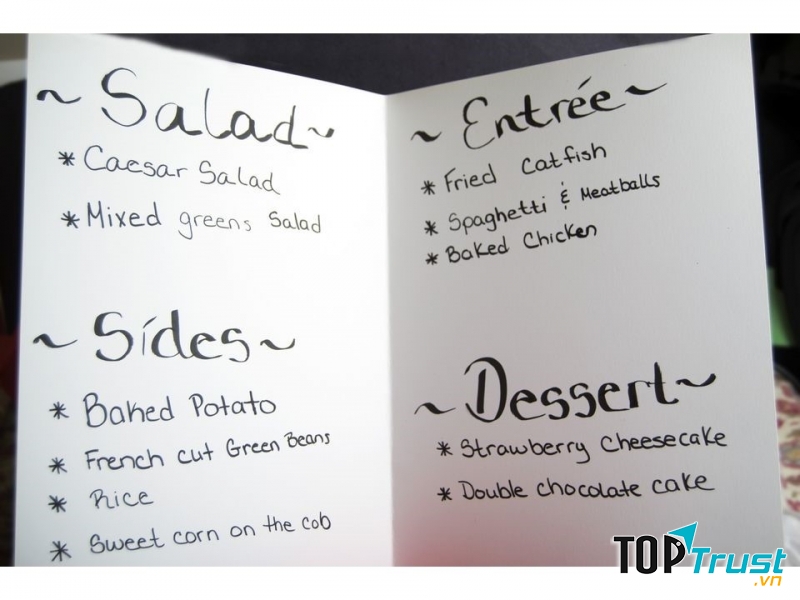 ~ Salad ~
* Caesar Salad
* Mixed greens Salad
~ Sides ~
* Baked Potato
* French cut Green Beans
* Rice
* Sweet corn on the cob
~ Entrée ~
* Fried Catfish
* Spaghetti & Meatballs
* Baked Chicken
~ Dessert ~
* Strawberry Cheesecake
* Double chocolate cake
TOPTrust
.vn